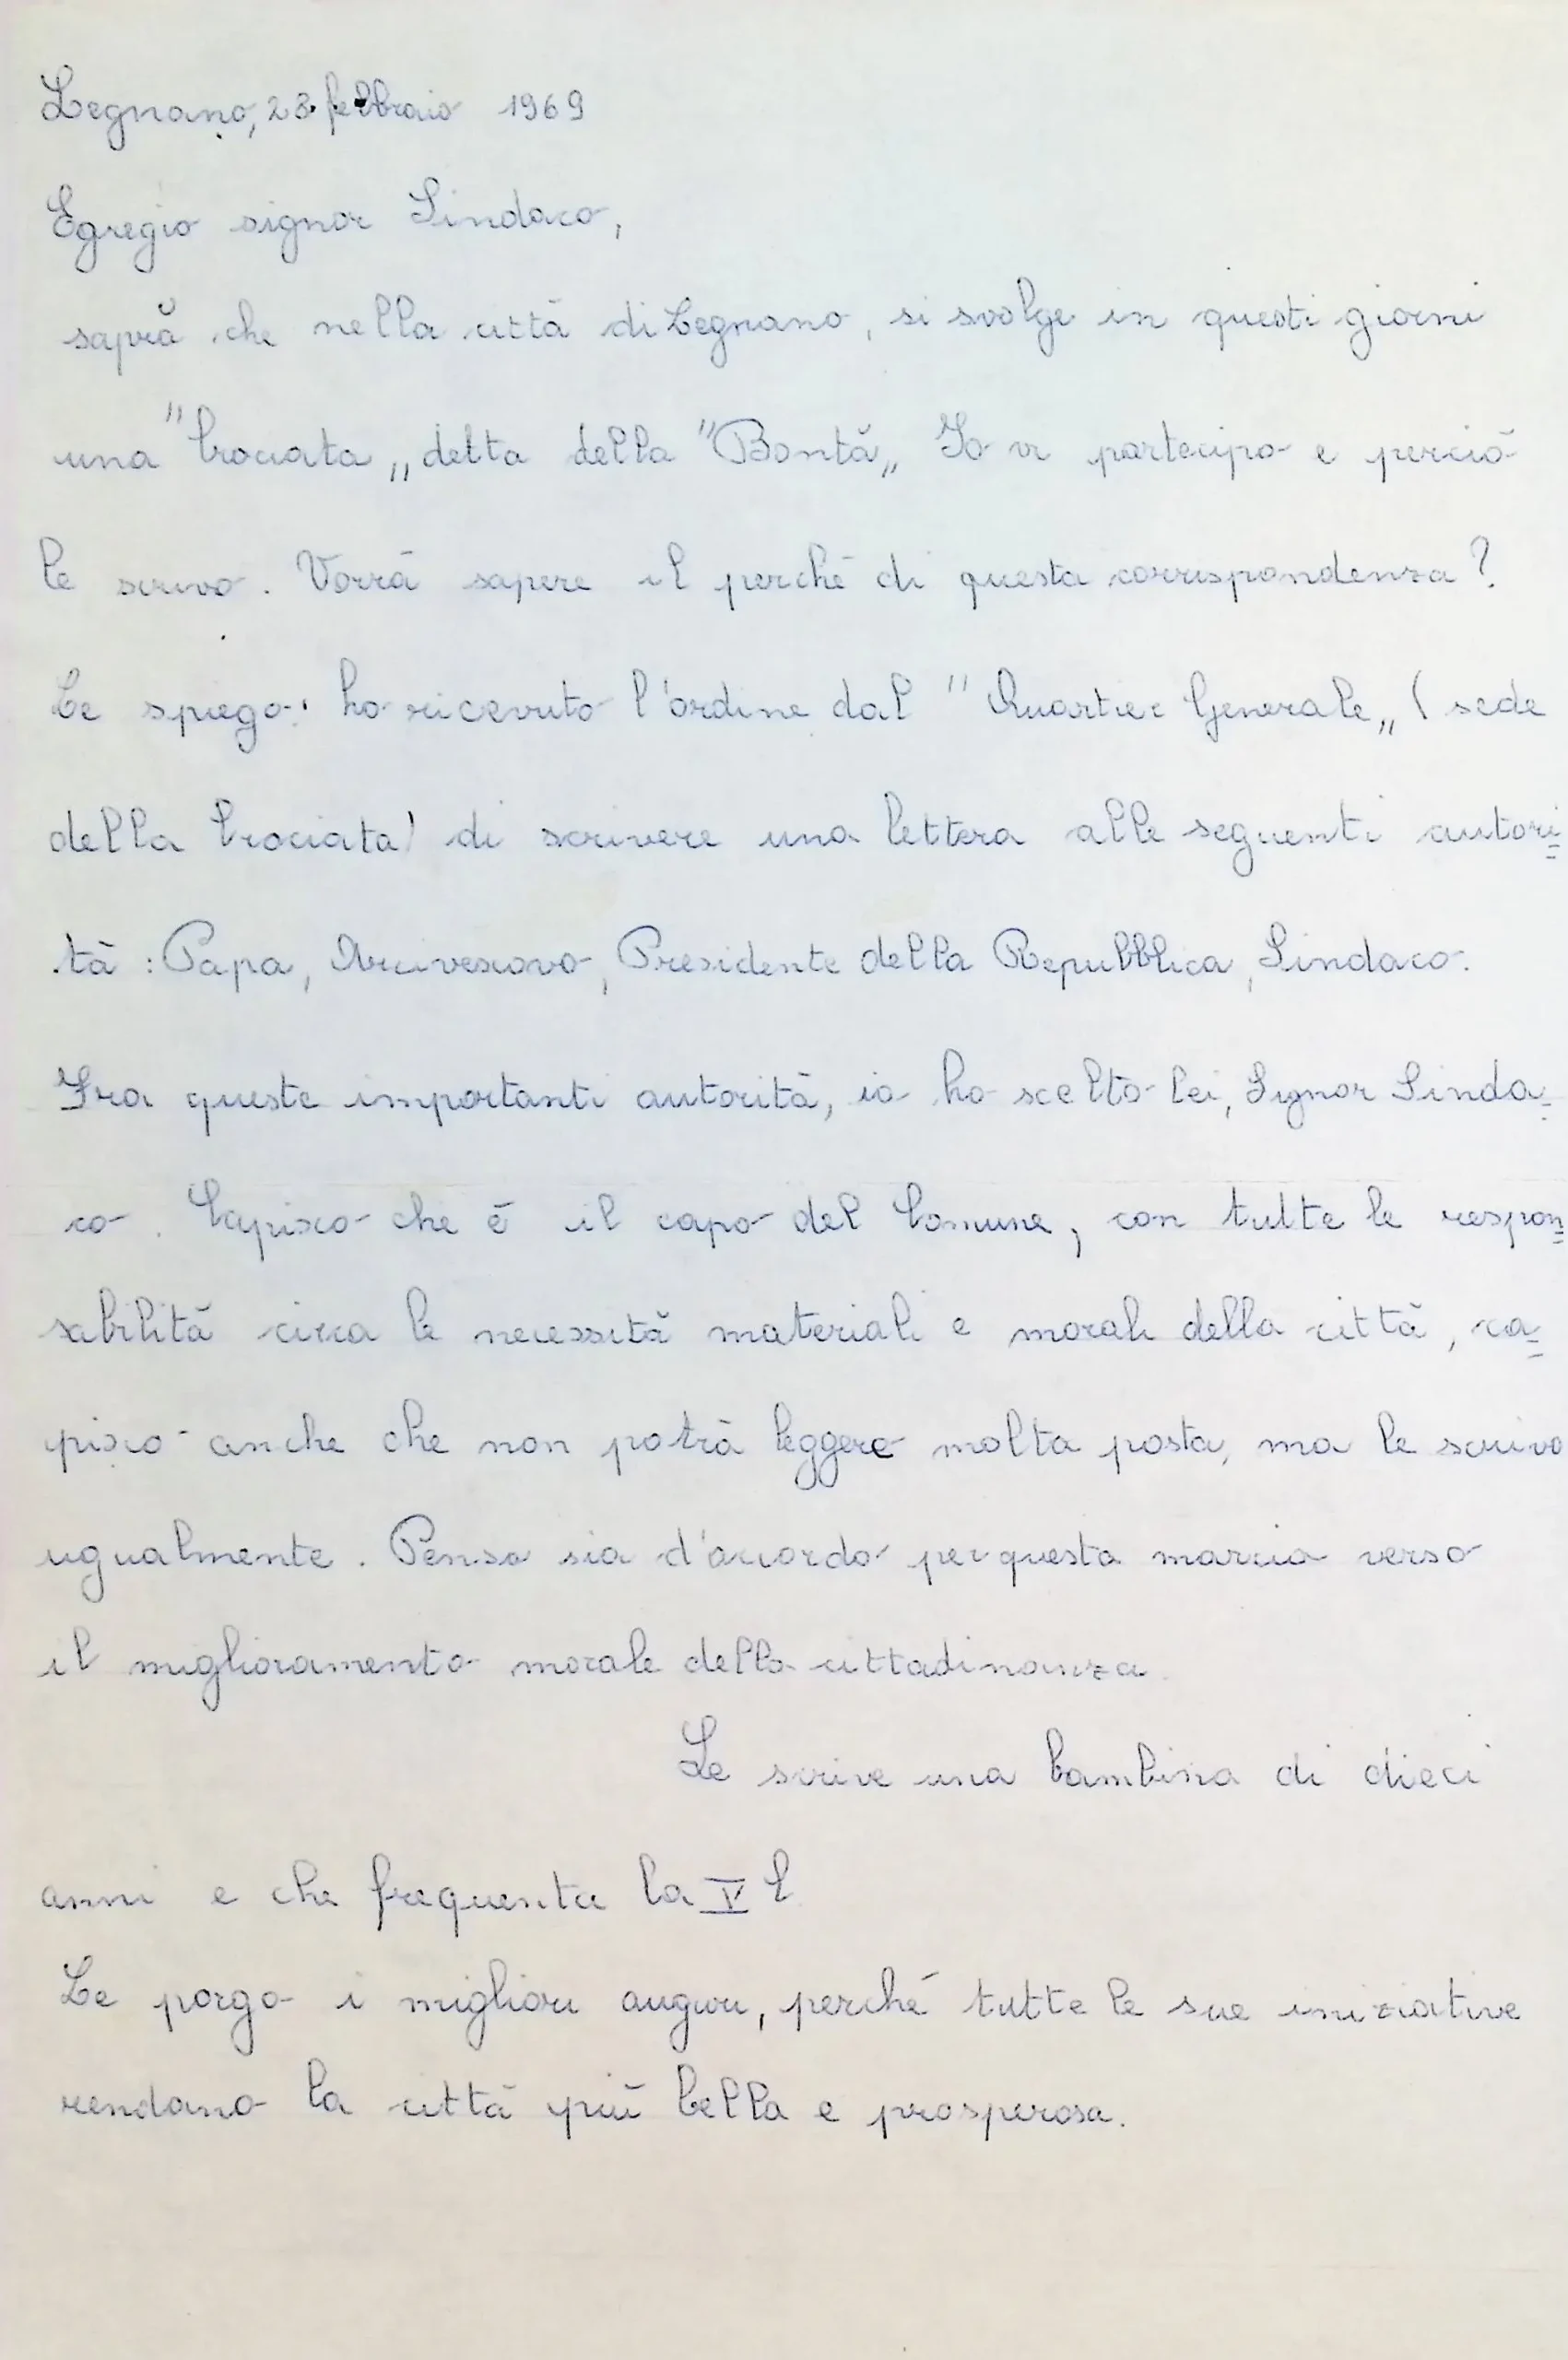 Legnano, 23 febbraio 1969
Egregio signor Sindaco,
saprà che nella città di Legnano, si svolge in questi giorni
una "Crociata„ detta della "Bontà„ Io vi partecipo e perciò
le scrivo. Vorrà sapere il perché di questa corrispondenza?
Le spiego: ho ricevuto l'ordine dal "Quartier Generale„ (sede
della Crociata) di scrivere una lettera alle seguenti autori=
tà: Papa, Arcivescovo, Presidente della Repubblica, Sindaco.
Fra queste importanti autorità, io ho scelto lei, Signor Sinda=
co. Capisco che è il capo del Comune, con tutte le respon=
sabilità circa le necessità materiali e morali della città, ca=
pisco anche che non potrà leggere molta posta, ma le scrivo
ugualmente. Penso sia d'accordo per questa marcia verso
il miglioramento morale della cittadinanza.
Le scrive una bambina di dieci
anni e che frequenta la V C
Le porgo i migliori auguri, perché tutte le sue iniziative
rendano la città più bella e prosperosa.